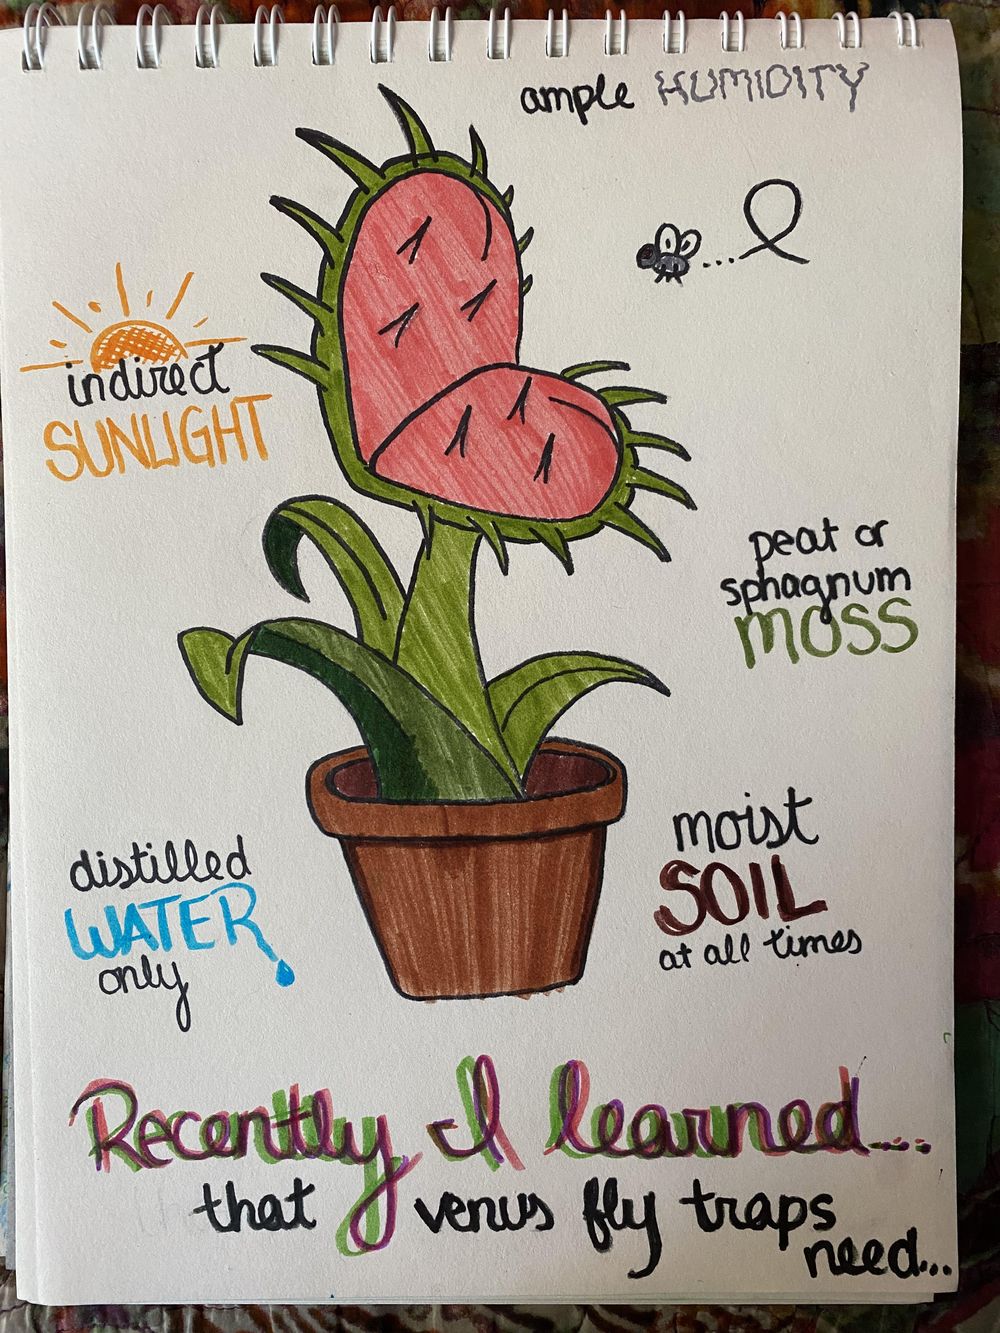 ample HUMIDITY
indirect
SUNLIGHT
peat or
sphagnum
MOSS
distilled
WATER
only
moist
SOIL
at all times
Recently I learned...
that venus fly traps
need...